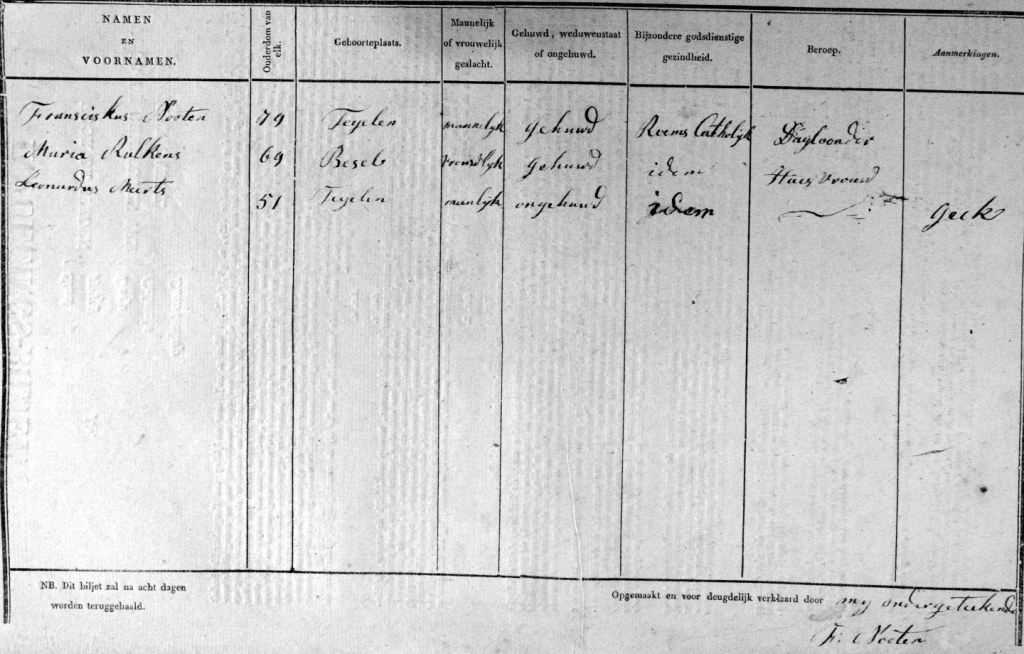 NAMEN
EN
VOORNAMEN.
Ouderdom van
elk.
Geboorteplaats.
Mannelijk
of vrouwelijk
geslacht.
Gehuwd, weduwenstaat
of ongehuwd.
Bijzondere godsdienstige
gezindheid.
Beroep.
Aanmerkingen.
Fransciskus Nooten 79 Teyelen mannelyk gehuwd Roems Catholyk Dagloonder
Maria Rulkens 69 Besel vrouwlyk gehuwd idem Huis Vrouw
Leonardus Meerts 51 Teyelen manlyk ongehuwd idem Geek
NB. Dit biljet zal na acht dagen
worden teruggehaald.
Opgemaakt en voor deugdelijk verklaard door my ondergeteekende
F. Nooten